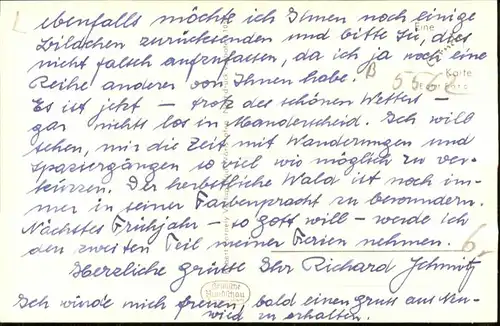 ebenfalls möchte ich Ihnen noch einige
Bildchen zurücksenden und bitte Sie, dies
nicht falsch aufzufassen, da ich ja noch eine
Reihe anderer von Ihnen habe.
Es ist jetzt – trotz des schönen Wetters –
gar nichts los in Manderscheid. Ich will
sehen, mir die Zeit mit Wanderungen und
Spaziergängen so viel wie möglich zu ver-
kürzen. Der herbstliche Wald ist noch im-
mer in seiner Farbenpracht zu bewundern.
Nächstes Frühjahr – so Gott will – werde ich
den zweiten Teil meiner Ferien nehmen.
Herzliche grüsse Ihr Richard Schmitz
Ich würde mich freuen, bald einen gruss aus Neu-
wied zu erhalten.
Eine
Karte
B
5568
6.-